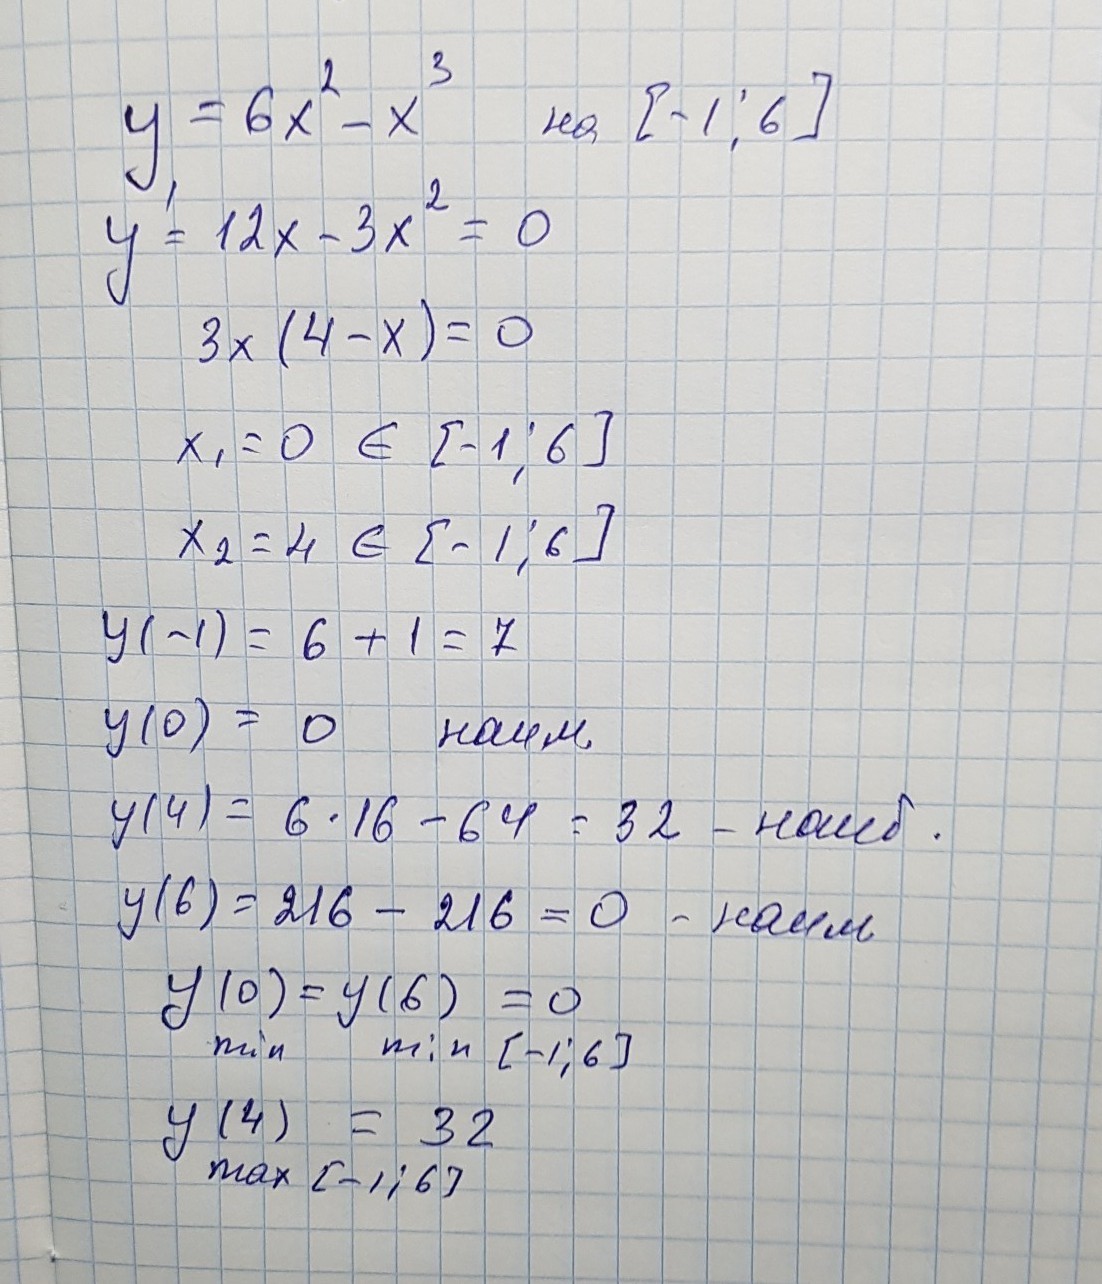 y = 6x² - x³ на [-1; 6]
y' = 12x - 3x² = 0
3x (4 - x) = 0
x₁ = 0 ∈ [-1; 6]
x₂ = 4 ∈ [-1; 6]
y(-1) = 6 + 1 = 7
y(0) = 0 наим.
y(4) = 6 · 16 - 64 = 32 - наиб.
y(6) = 216 - 216 = 0 - наим
y(0) = y(6) = 0
min min [-1; 6]
y(4) = 32
max [-1; 6]